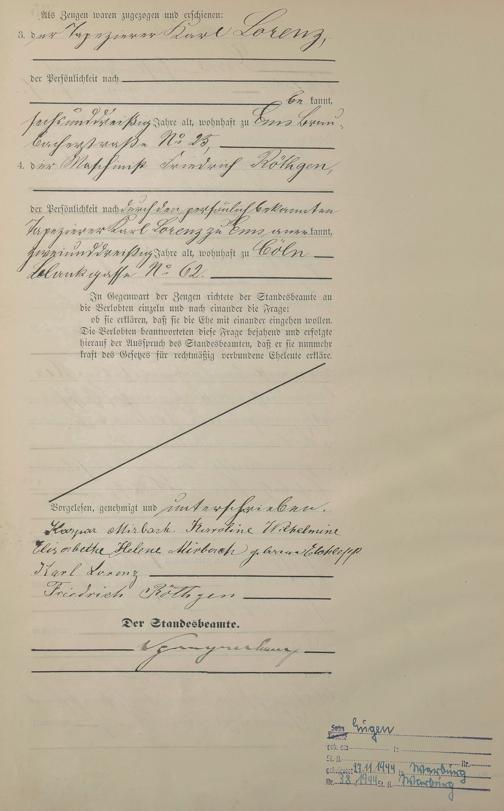 Als Zeugen waren zugezogen und erschienen:
3. der Tapezierer Karl Lorenz,
der Persönlichkeit nach
be kannt,
sechsunddreißig Jahre alt, wohnhaft zu Ems Brau-
bacherstraße No 25,
4. der Maschinist Friedrich Röthgen,
der Persönlichkeit nach durch den persönlich bekannten
Tapezierer Karl Lorenz zu Ems aner kannt,
zweiunddreißig Jahre alt, wohnhaft zu Cöln
No 62.
In Gegenwart der Zeugen richtete der Standesbeamte an
die Verlobten einzeln und nach einander die Frage:
ob sie erklären, daß sie die Ehe mit einander eingehen wollen.
Die Verlobten beantworteten diese Frage bejahend und erfolgte
hierauf der Ausspruch des Standesbeamten, daß er sie nunmehr
kraft des Gesetzes für rechtmäßig verbundene Eheleute erkläre.
Vorgelesen, genehmigt und unterschrieben.
Kaspar Mirbach. Karoline Wilhelmine
Elisabethe Helene Mirbach geborene
Karl Lorenz
Friedrich Röthgen
Der Standesbeamte.
Sohn Eugen
geb. am in
St. A. Nr.
11 1944 in Warburg
Nr. 1944 St. A. Warburg